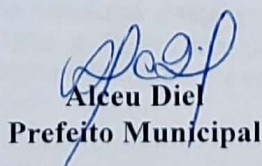 Alceu Diel
Prefeito Municipal